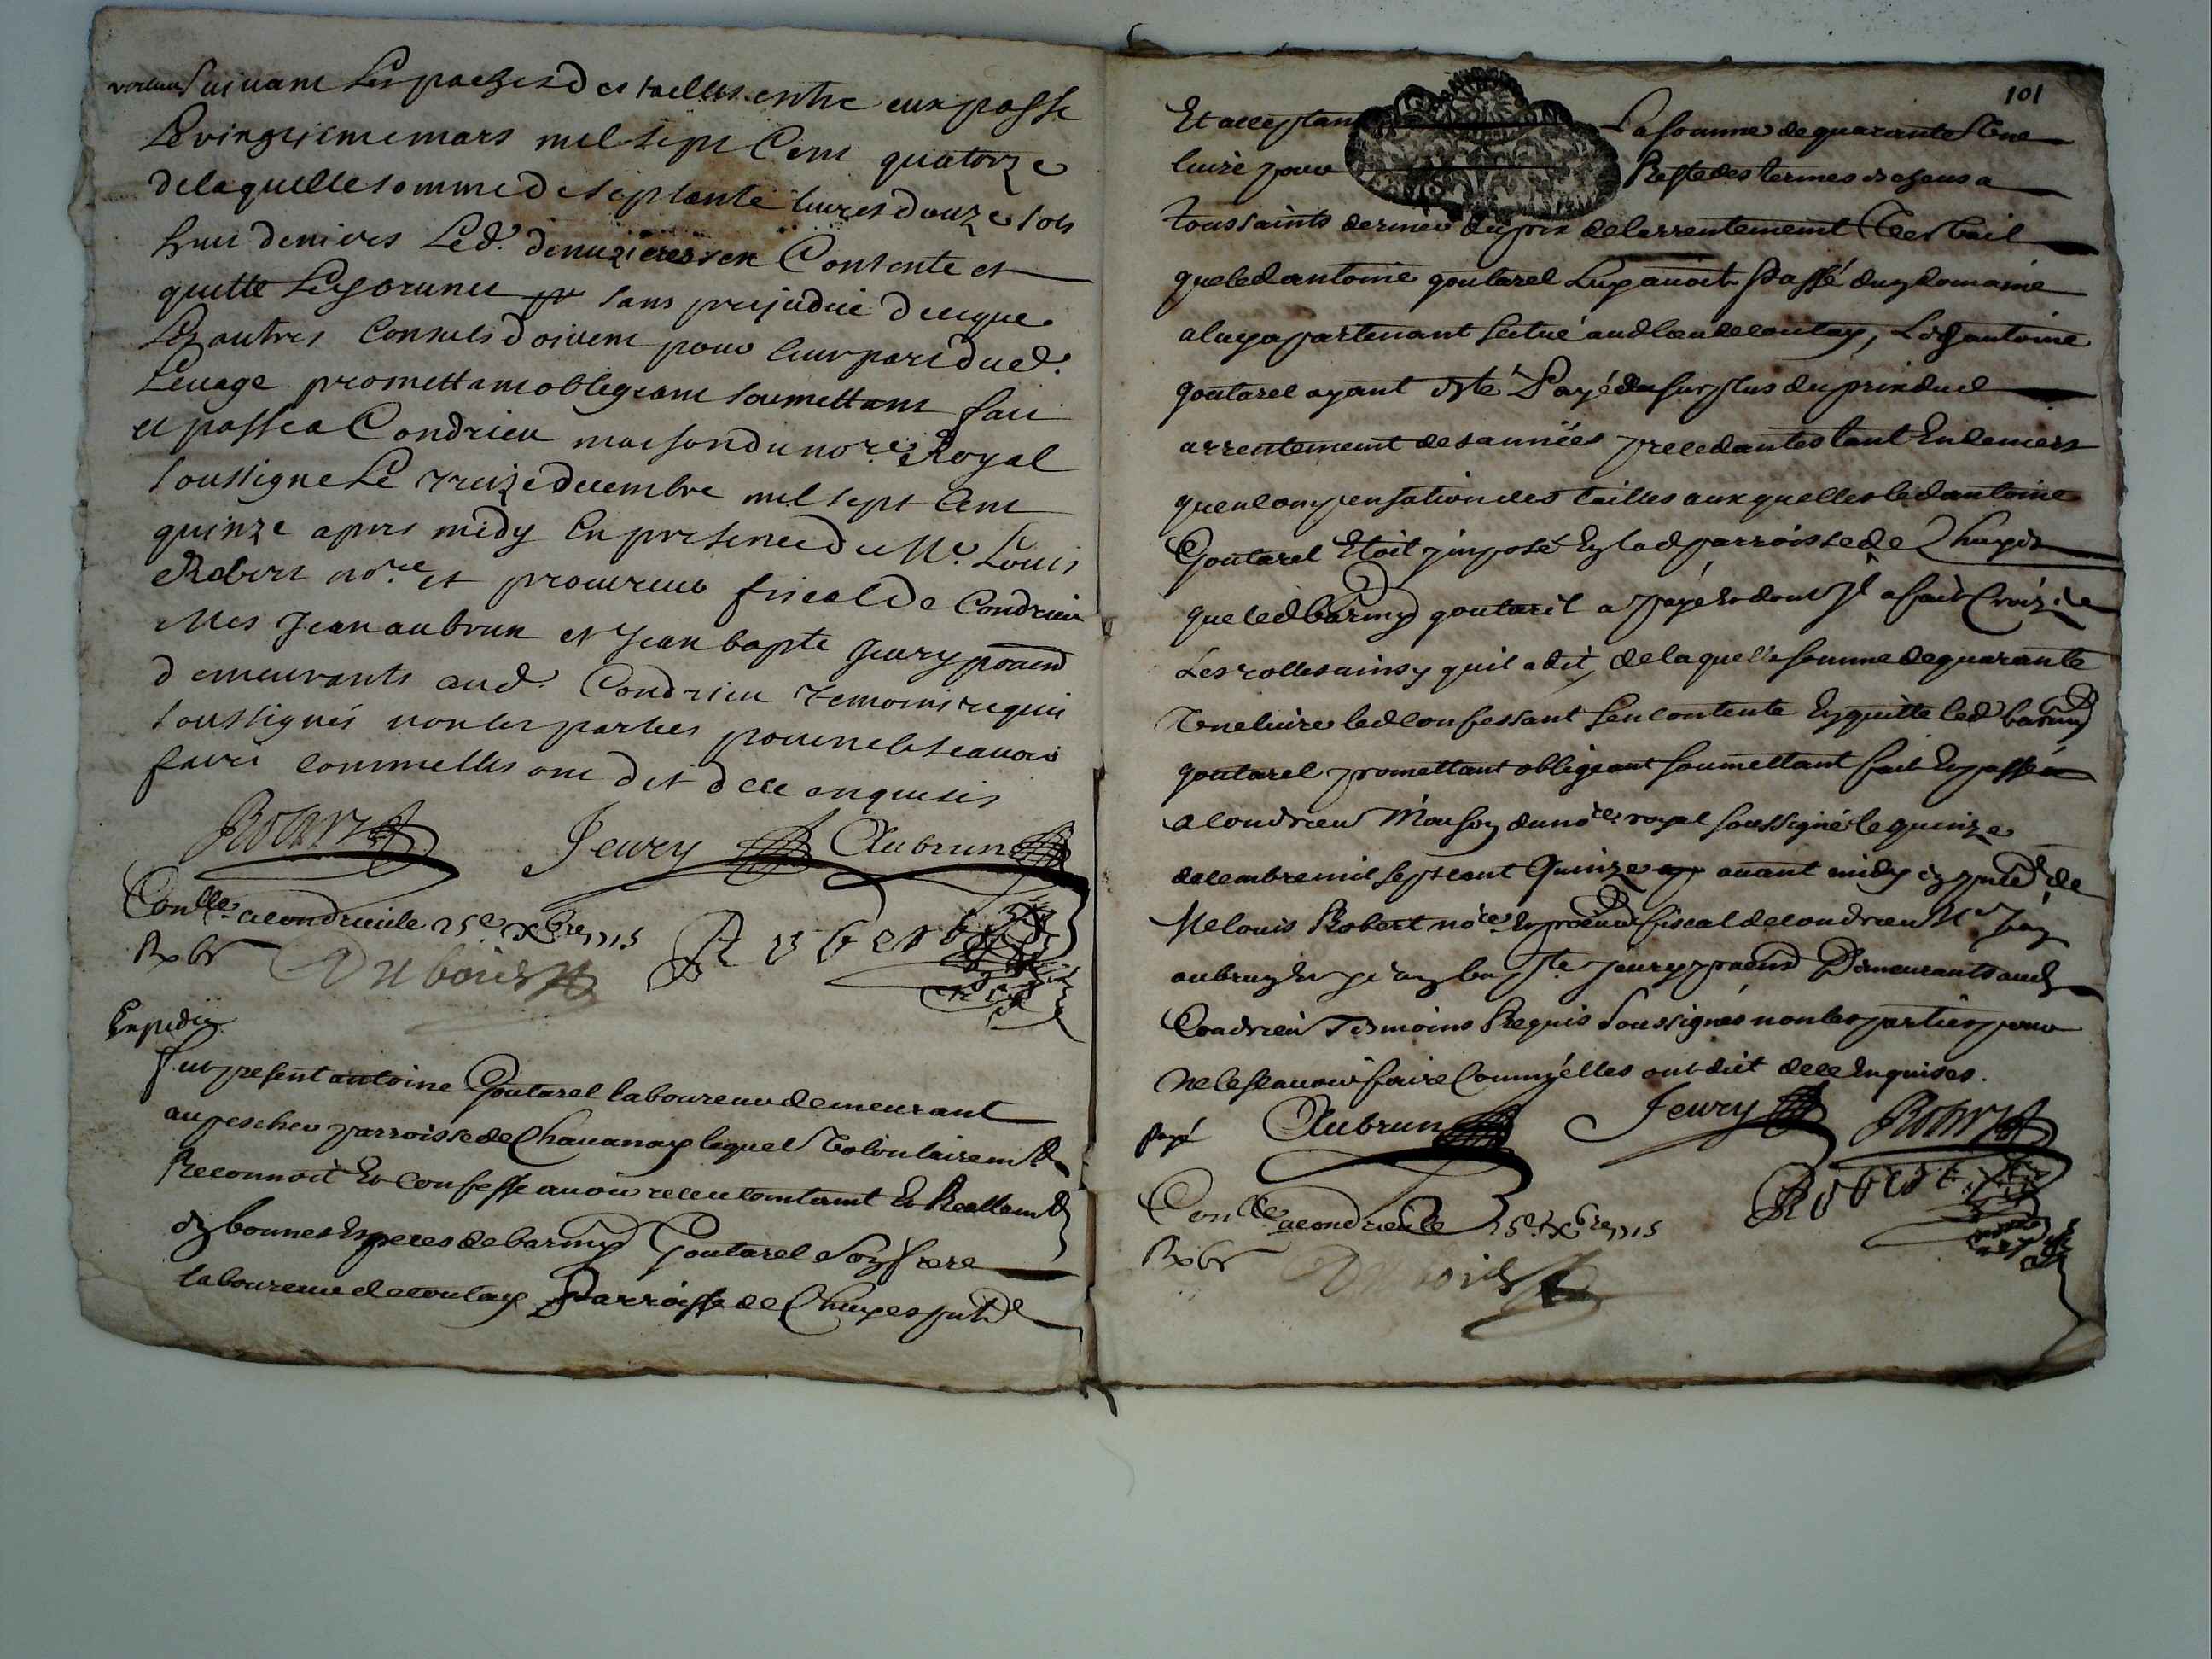 suivant les paches des tailles entre eux passé
le vingtieme mars mil sept cent quatorze
de laquelle somme de septante livres douze sols
huit deniers led. denuzieres sen contente et
quitte sans prejudice de ce que
les autres consuls doivent pour leur part dud.
levage promettant obligeant soumettant fait
et passé a Condrieu maison du nore Royal
soussigné le treize decembre mil sept cent
quinze apres midy en presence de Me. Louis
Robert nore et procureur fiscal de Condrieu
Mes Jean aubrun et Jean bapte Jeury
demeurants aud. Condrieu temoins requis
soussignés non les parties pour ne le scavoir
faire comme elles ont dit de ce enquises
Jeury Aubrun
Conlle a condrieu le 25e xbre 1715
Dubois Robert
Expedié
fut present antoine Goutarel laboureur demeurant
au pescher parroisse de Chavanay lequel volontairemt
Reconnoit et confesse avoir receu comtamt et Reallemt
en bonnes especes de barmy Goutarel son frere
laboureur de coulay Parroisse de Chuyes pnt
101
Et acceptant La somme de quarante une
livre pour Reste des termes escheus a
toussaints dernier du prix de larrentement et bail
que led antoine goutarel luy avoit Passé du domaine
a luy apartenant scitué aud lieu de coulay, Led antoine
goutarel ayant esté Payé du surplus du prix dud
arrentement des années precedantes tant en deniers
quen compensation des tailles aux quelles led antoine
Goutarel Etoit imposé en lad parroisse de Chuyes
que led barmy goutarel a payé et dont il a fait
Les rolles ainsy quil a dit, de laquelle somme de quarante
une livre led confessant sen contente en quitte led barmy
goutarel promettant obligeant soumettant fait et passé
a Condrieu Maison du nore royal soussigné le quinze
decembre mil sept cent Quinze avant midy en pnce de
Me louis Robert nore et procur fiscal de condrieu Me Jean
aubrun et jean bapte jeury Demeurants aud
Condrieu Tesmoins Requis Soussignés non les parties pour
ne le scavoir faire comme elles ont dit de ce Enquises.
payé Aubrun Jeury
Conlle a condrieu le 25e xbre 1715 Robert
Dubois